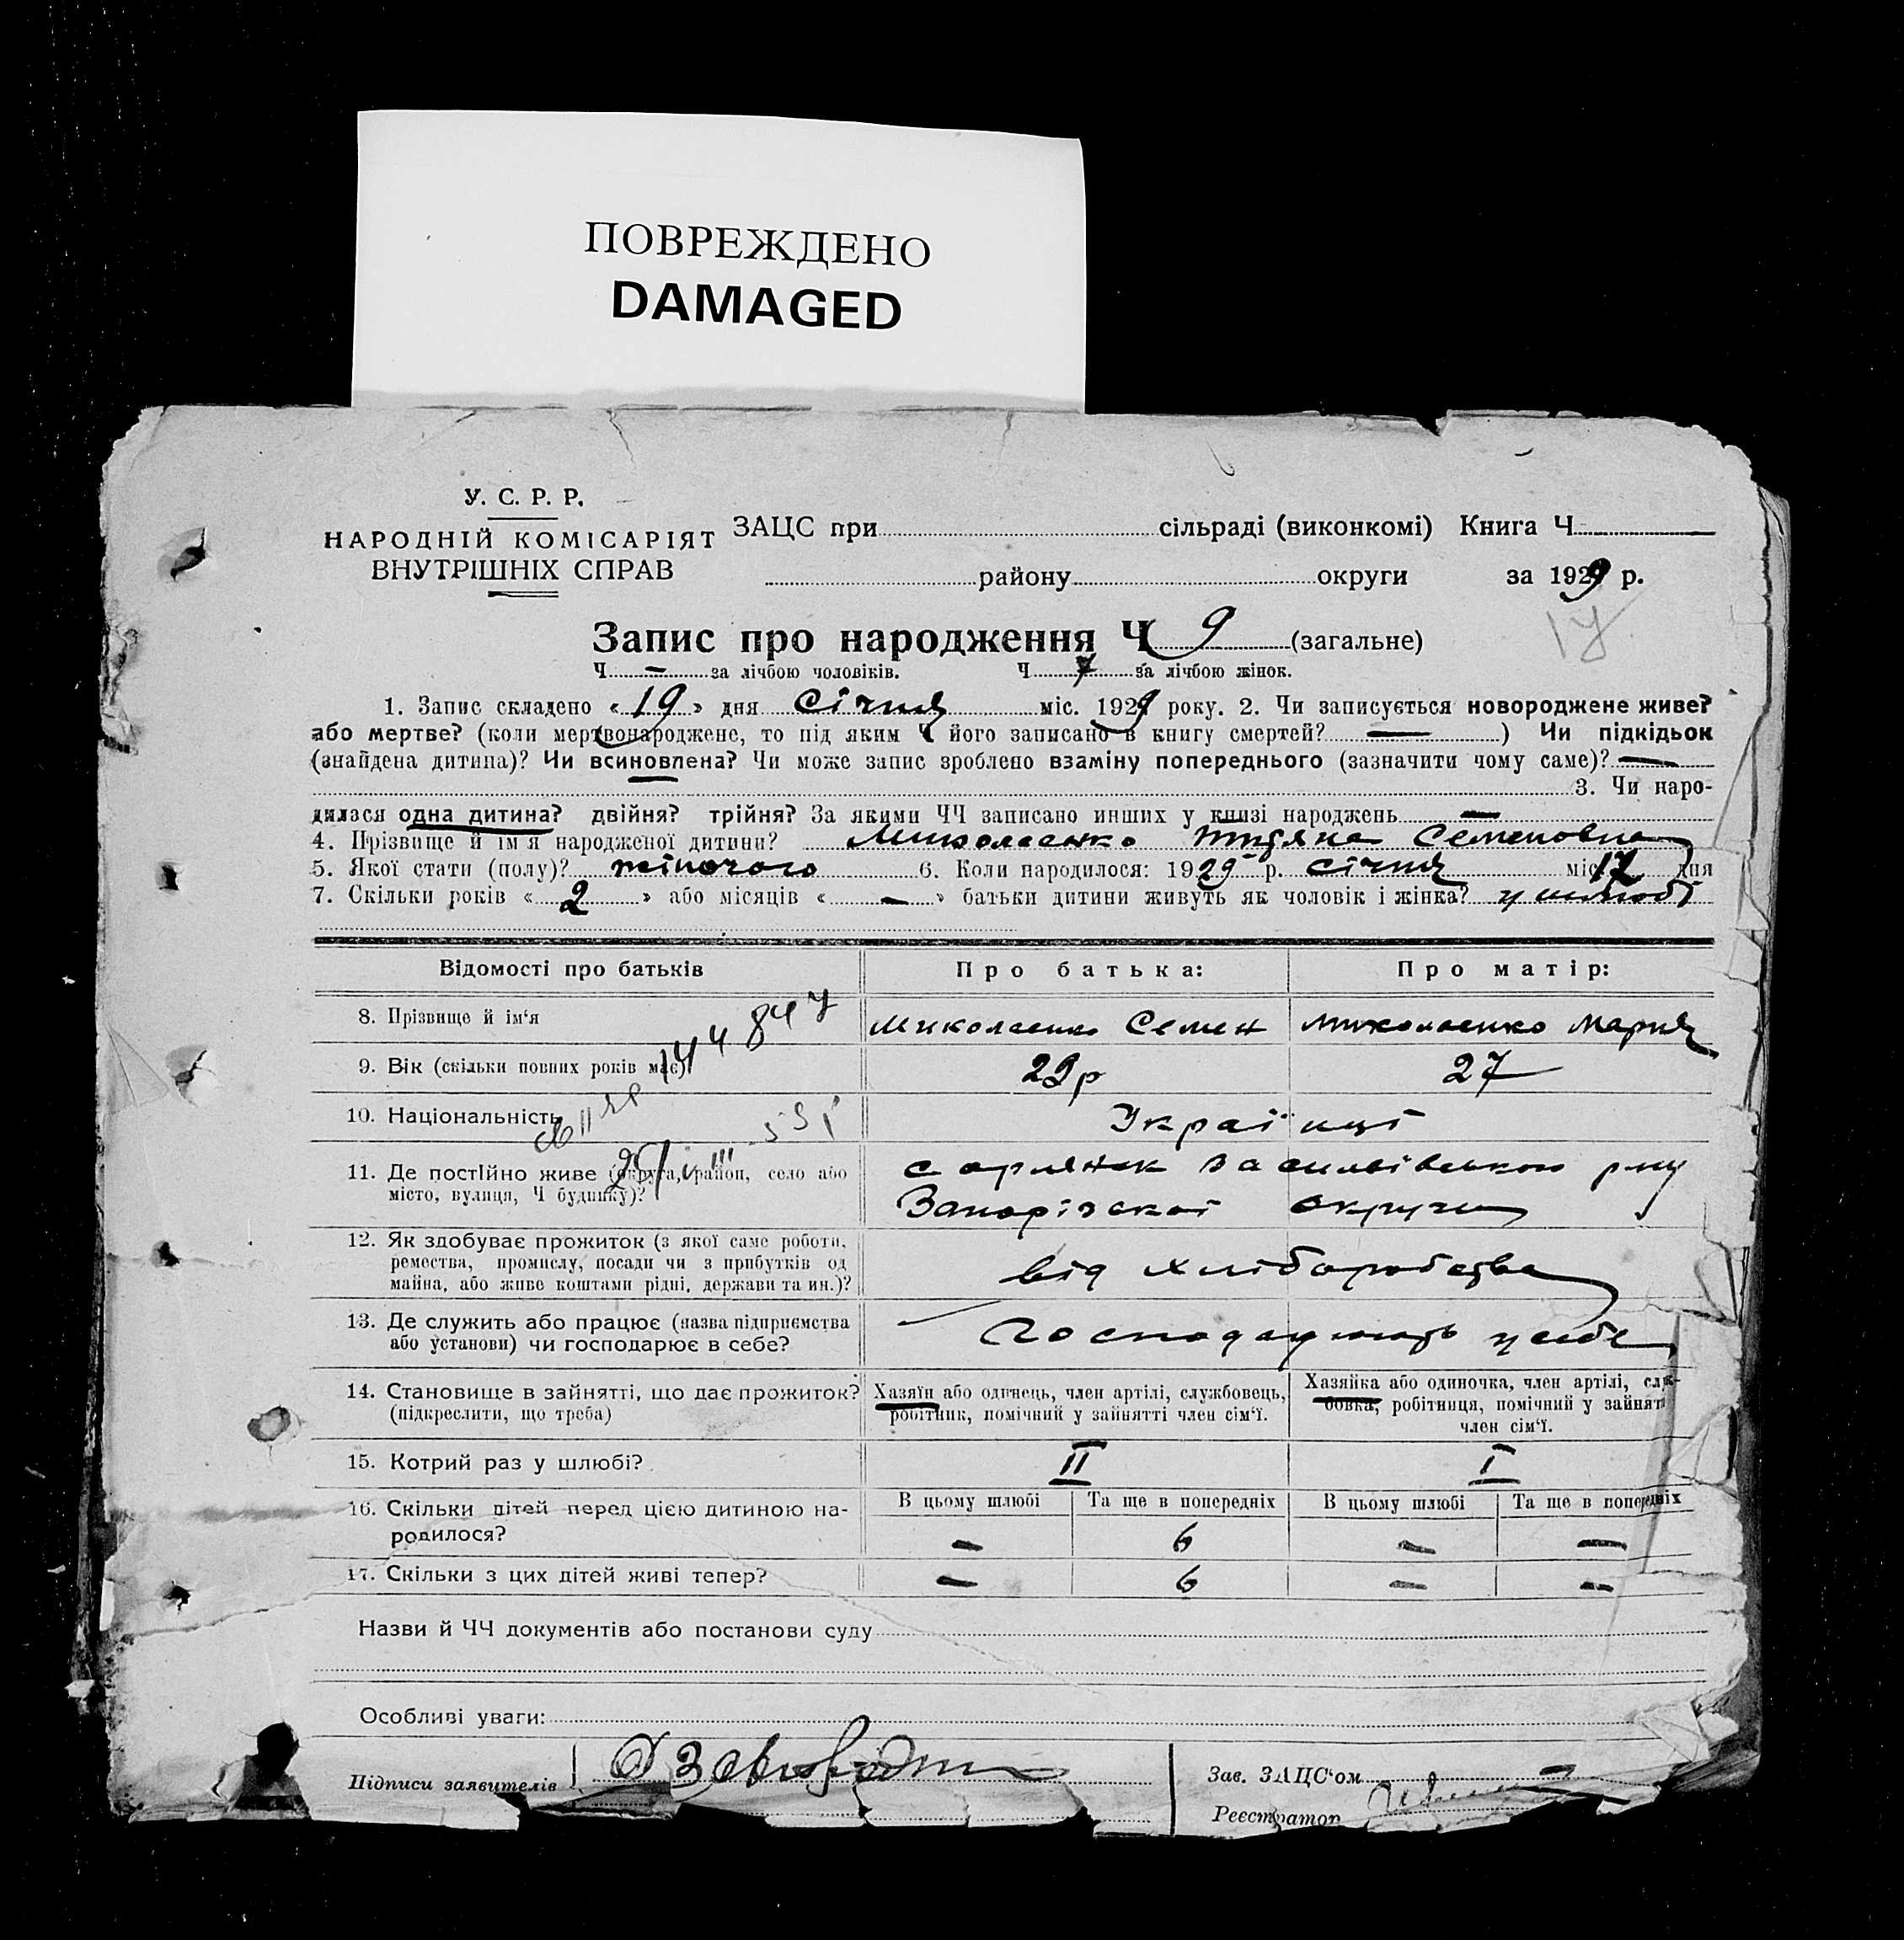 ПОВРЕЖДЕНО
DAMAGED
У. С. Р. Р.
НАРОДНІЙ КОМІСАРІЯТ
ВНУТРІШНІХ СПРАВ
ЗАЦС при сільраді (виконкомі) Книга Ч. —
району округи за 1929 р.
17
Запис про народження Ч 9 (загальне)
Ч. — за лічбою чоловіків. Ч. 7 за лічбою жінок.
1. Запис складено « 19 » дня Січня міс. 1929 року. 2. Чи записується новороджене живе?
або мертве? (коли мертвонароджене, то під яким Ч його записано в книгу смертей? — ) Чи підкідьок
(знайдена дитина)? Чи всиновлена? Чи може запис зроблено взаміну попереднього (зазначити чому саме)? —
3. Чи наро-
дилася одна дитина? двійня? трійня? За якими ЧЧ записано инших у книзі народжень —
4. Прізвище й ім'я народженої дитини? Миколаенко Титяна Семеновна
5. Якої стати (полу)? жіночого 6. Коли народилося: 1929 р. січня міс. 17 дня
7. Скільки років « 2 » або місяців « — » батьки дитини живуть як чоловік і жінка? у шлюбі
Відомості про батьків Про батька: Про матір:
8. Прізвище й ім'я Миколаенко Семен Миколаенко Мария
9. Вік (скільки повних років має) 29р 27
10. Національність Українці
11. Де постійно живе (округа, район, село або
місто, вулиця, Ч будинку)?
Василівського р-ну
Запорізскої округи
12. Як здобуває прожиток (з якої саме роботи,
ремества, промислу, посади чи з прибутків од
майна, або живе коштами рідні, держави та ин.)?
від хліборобства
13. Де служить або працює (назва підприємства
або установи) чи господарює в себе?
Господарюють у себе
14. Становище в зайнятті, що дає прожиток?
(підкреслити, що треба)
Хазяїн або одинець, член артілі, службовець,
робітник, помічний у зайнятті член сім'ї.
Хазяйка або одиночка, член артілі, служ-
бовка, робітниця, помічний у зайнят
член сім'ї.
15. Котрий раз у шлюбі? II I
16. Скільки дітей перед цією дитиною на-
родилося?
В цьому шлюбі Та ще в попередніх В цьому шлюбі Та ще в попередніх
— 6 — —
17. Скільки з цих дітей живі тепер? — 6 — —
Назви й ЧЧ документів або постанови суду
Особливі уваги:
Підписи заявителів
Зав. ЗАЦС'ом
Реєстратор